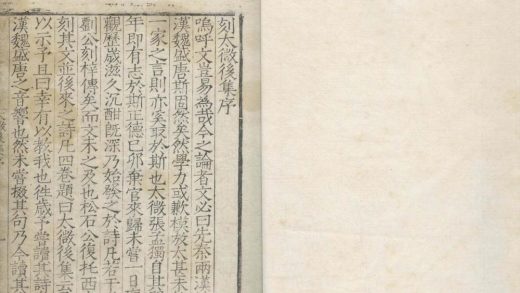 刻太微後集序
嗚呼文豈易為哉今之論者文必曰先秦兩漢
漢魏盛唐斯固然矣然學力或歉模放太甚未
一家之言則亦奚取於斯也太微張孟獨自其
年即有志於斯正德己卯棄官來歸未嘗一日
觀歷歲滋久沉酣既深乃始發之於詩凡若干
劉公刻梓傳矣而文未之及也松石公復托西
刻其文並後來之詩凡四卷題曰太微後集云
以示予且曰幸有以教我也往歲予嘗讀其詩
漢魏盛唐之音響也然未嘗掇其句乃今讀其